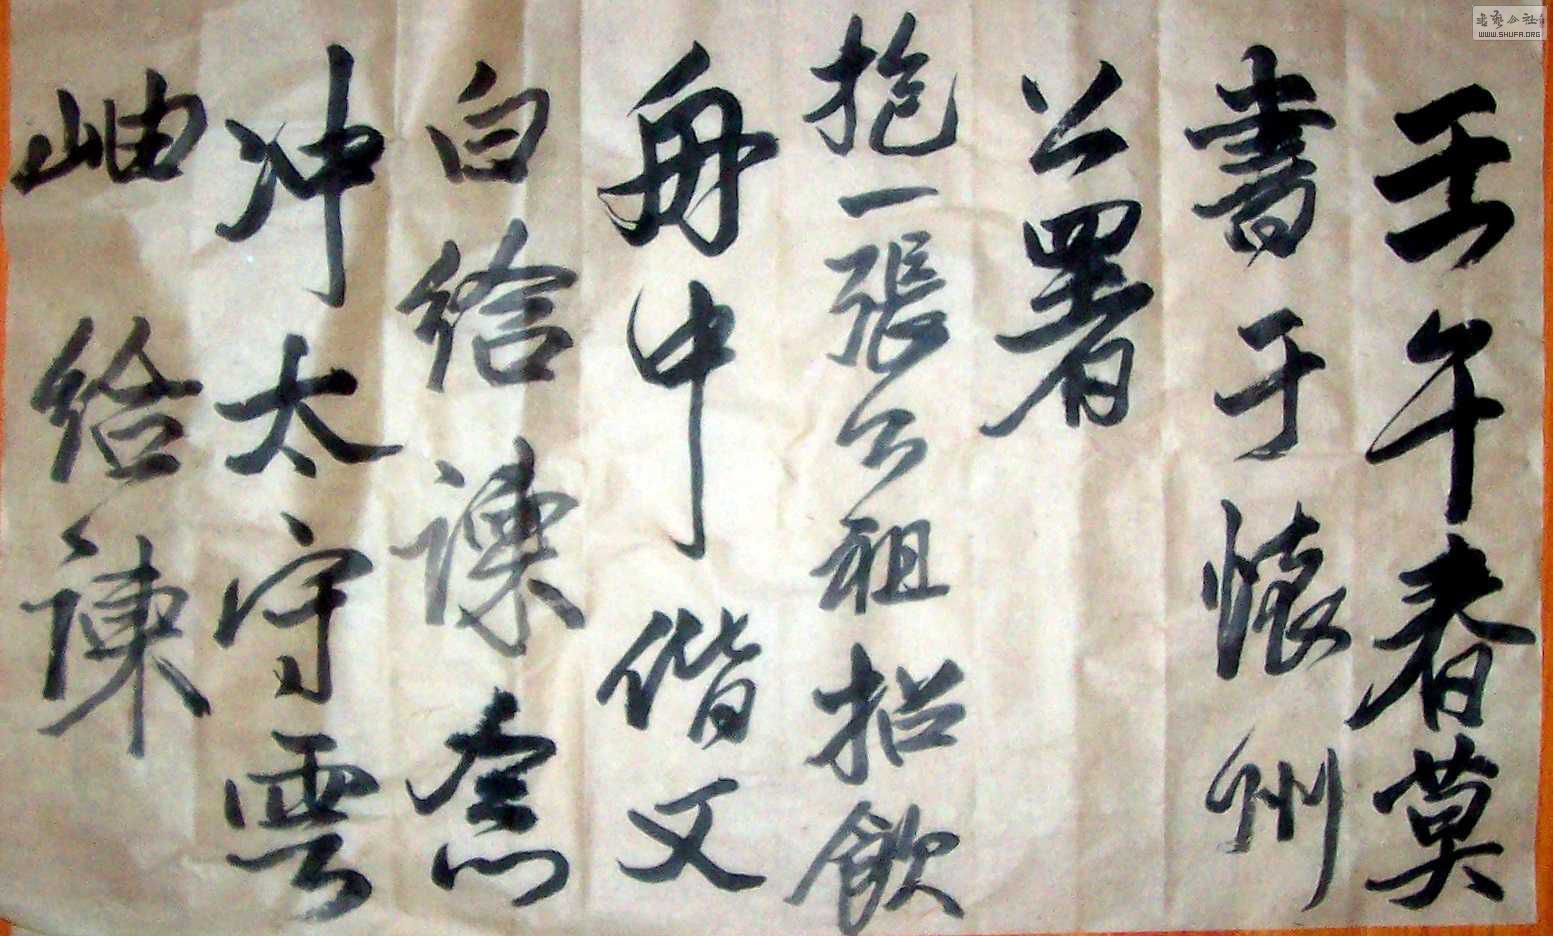 壬午春莫
書于懷州
公署
抱一張公祖招飲
舟中偕文
白給諫念
冲太守雲
岫給諫
書藝公社
WWW.SHUFA.ORG